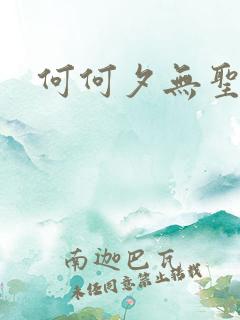 何何夕無聖
南迦巴瓦
未经同意禁止转载